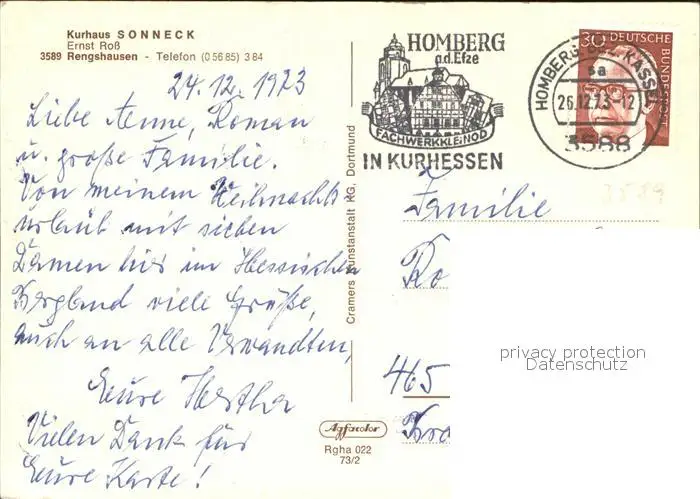 Kurhaus SONNECK
Ernst Roß
3589 Rengshausen - Telefon (0 56 85) 3 84
24.12.1973
Liebe Aenne, Roman
u. große Familie.
Von meinem Weihnachts
urlaub mit sieben
Damen hier im Hessischen
Bergland viele Grüße,
auch an alle Verwandten,
Eure Hertha
Vielen Dank für
Eure Karte!
Cramers Kunstanstalt KG, Dortmund
Agfacolor
Rgha 022
73/2
HOMBERG
a.d.Efze
FACHWERKKLEINOD
IN KURHESSEN
HOMBERG BEZ. KASSEL
sa
26.12.73-12
3588
30 DEUTSCHE
BUNDESPOST
3589
Familie
Ro
465
privacy protection
Datenschutz